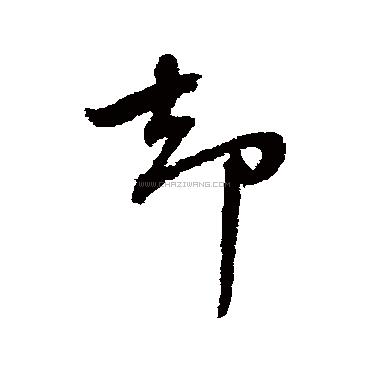 却
WWW.CHAZIWANG.COM